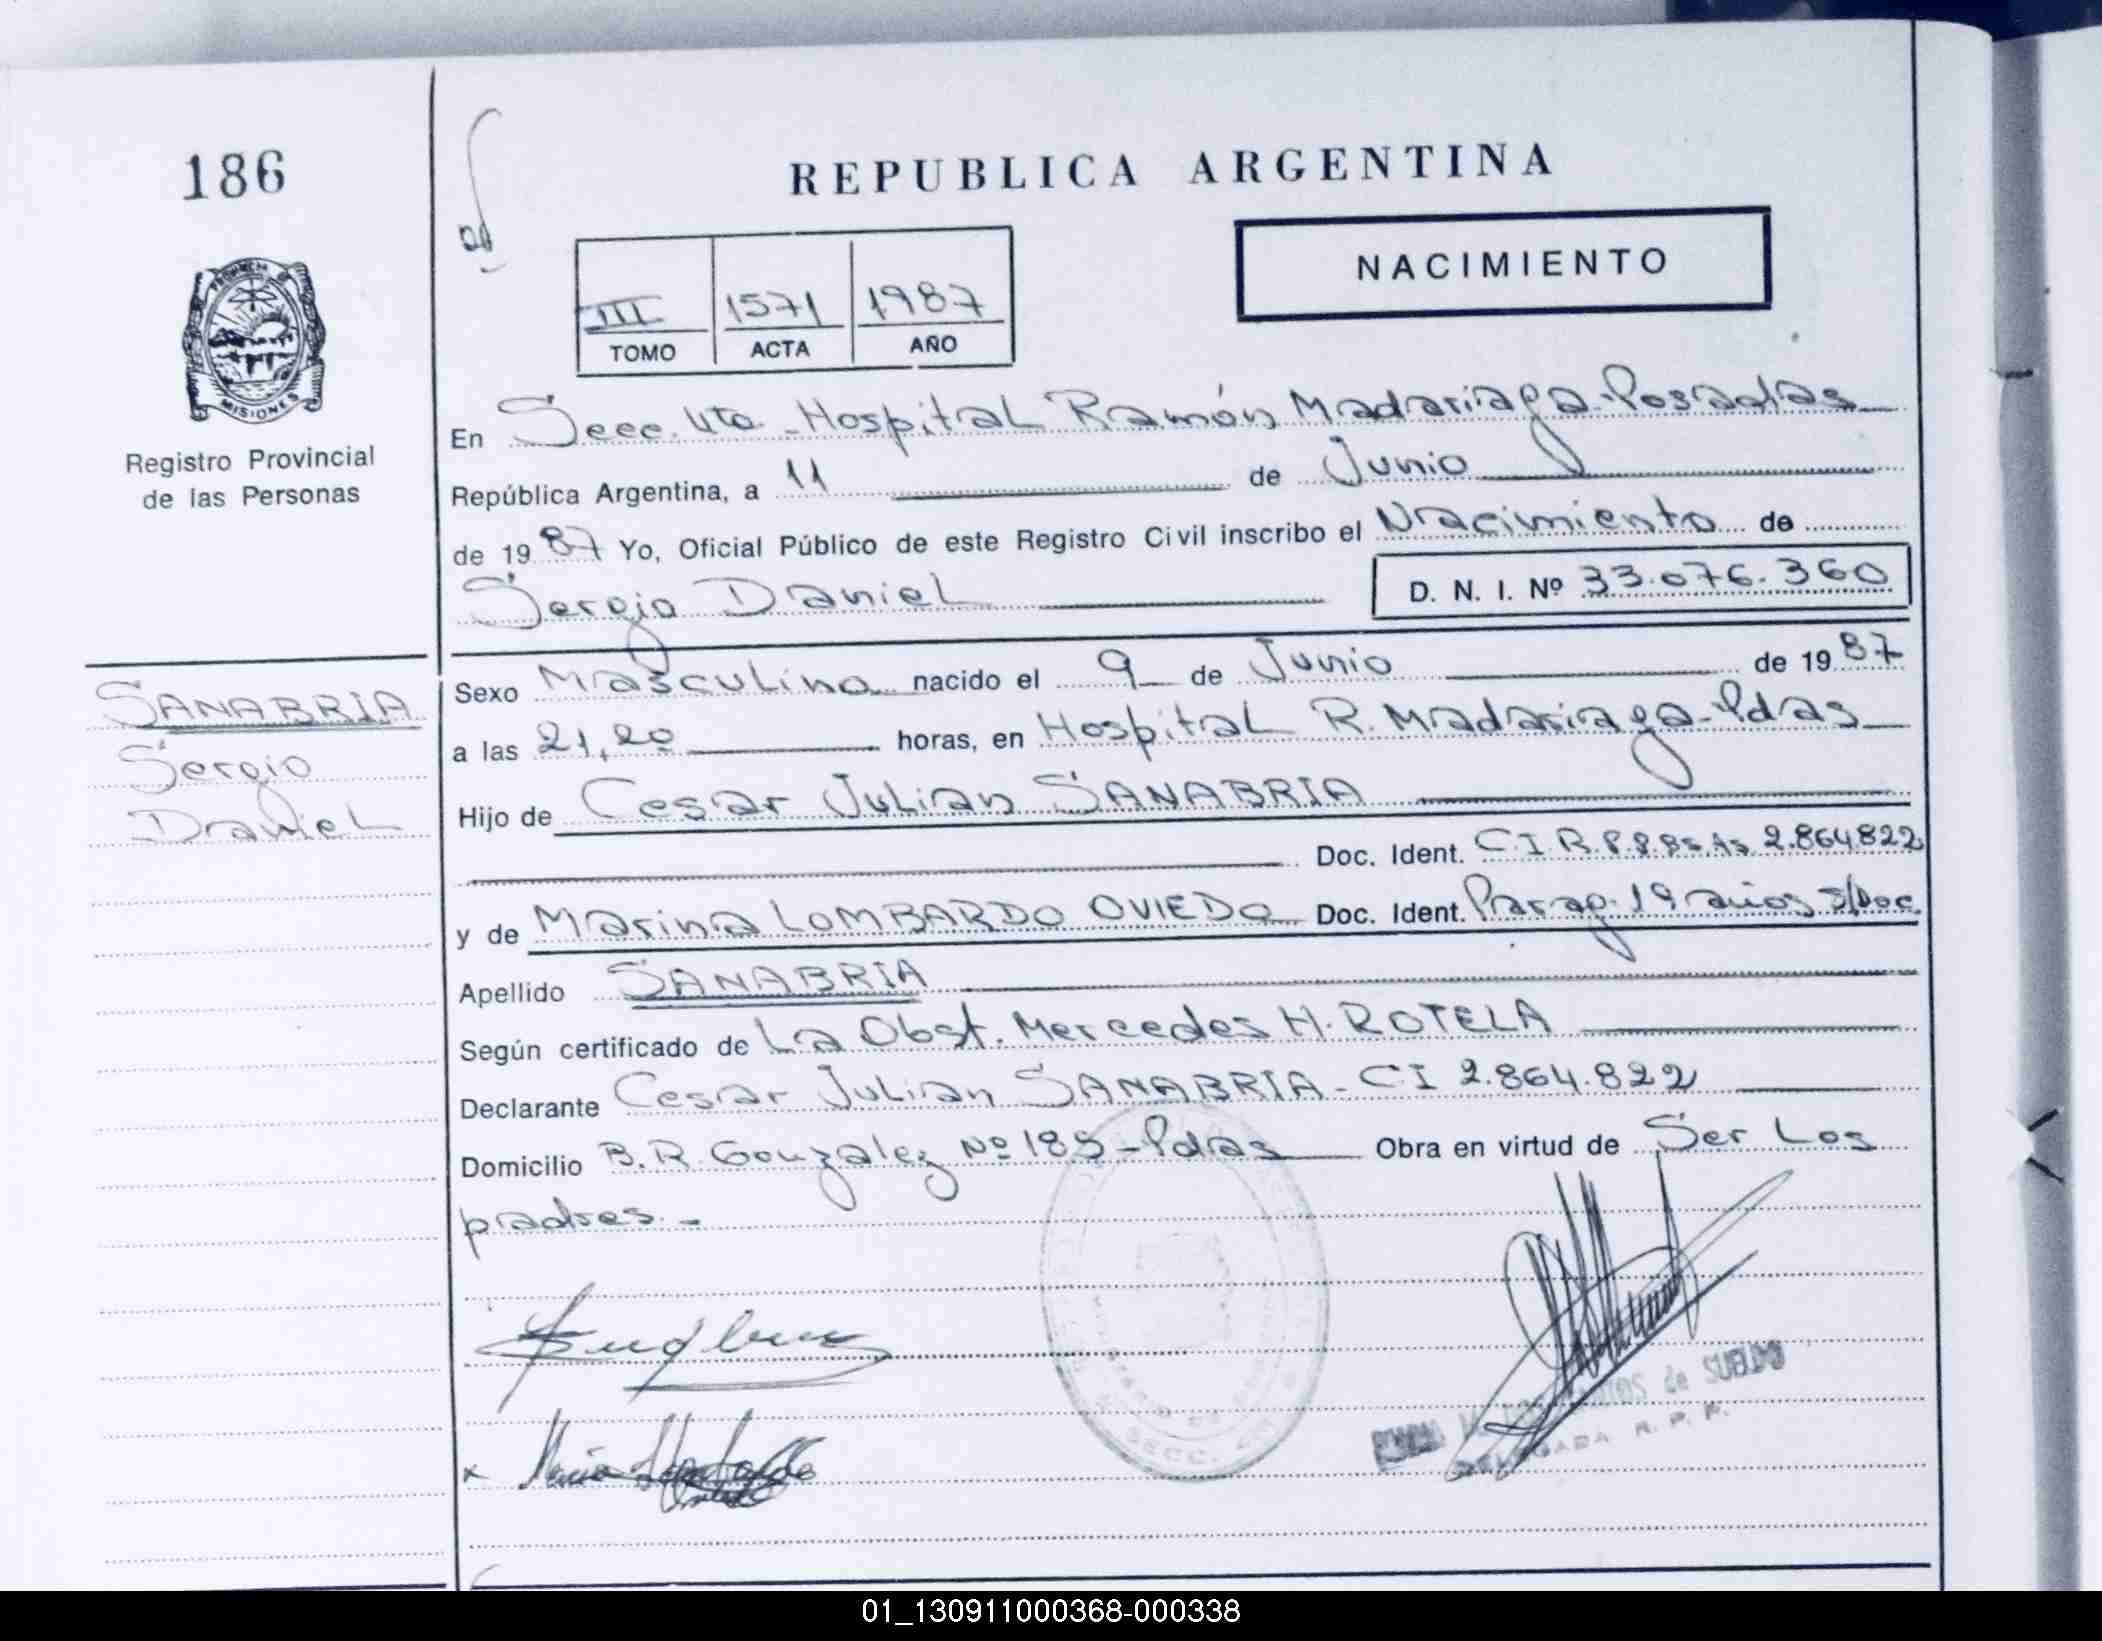 186
REPUBLICA ARGENTINA
NACIMIENTO
III 1571 1987
TOMO ACTA AÑO
PROVINCIA
MISIONES
Registro Provincial
de las Personas
En Secc. 4ta - Hospital Ramón Madariaga - Posadas
República Argentina, a 11 de Junio
de 1987 Yo, Oficial Público de este Registro Civil inscribo el Nacimiento de
Sergio Daniel D. N. I. Nº 33.076.360
SANABRIA
Sergio
Daniel
Sexo Masculino nacido el 9 de Junio de 1987
a las 21,20 horas, en Hospital R. Madariaga - Pdas
Hijo de Cesar Julian SANABRIA
Doc. Ident. C.I. 2.864.822
y de Marina LOMBARDO OVIEDO Doc. Ident. Parag. 19 años S/Doc.
Apellido SANABRIA
Según certificado de La Obst. Mercedes H. ROTELA
Declarante Cesar Julian SANABRIA - CI 2.864.822
Domicilio B.R. Gonzalez Nº 185 - Pdas Obra en virtud de Ser Los
padres. -
de SUELDO
DELEGADA R. P. P.
SECC.
01_130911000368-000338